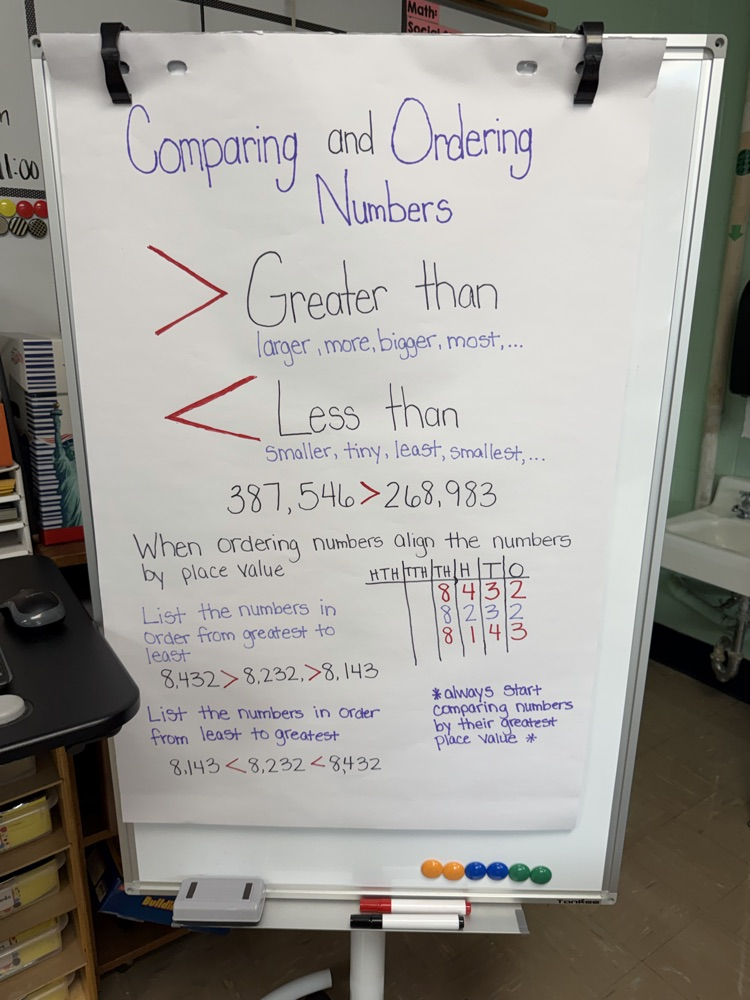 Math:
Social
11:00
Comparing and Ordering
Numbers
> Greater than
larger, more, bigger, most,...
< Less than
smaller, tiny, least, smallest,...
387,546 > 268,983
When ordering numbers align the numbers
by place value
HTH TTH TH H T O
8 4 3 2
8 2 3 2
8 1 4 3
List the numbers in
order from greatest to
least
8,432 > 8,232, > 8,143
List the numbers in order
from least to greatest
8,143 < 8,232 < 8,432
*always start
comparing numbers
by their greatest
place value *